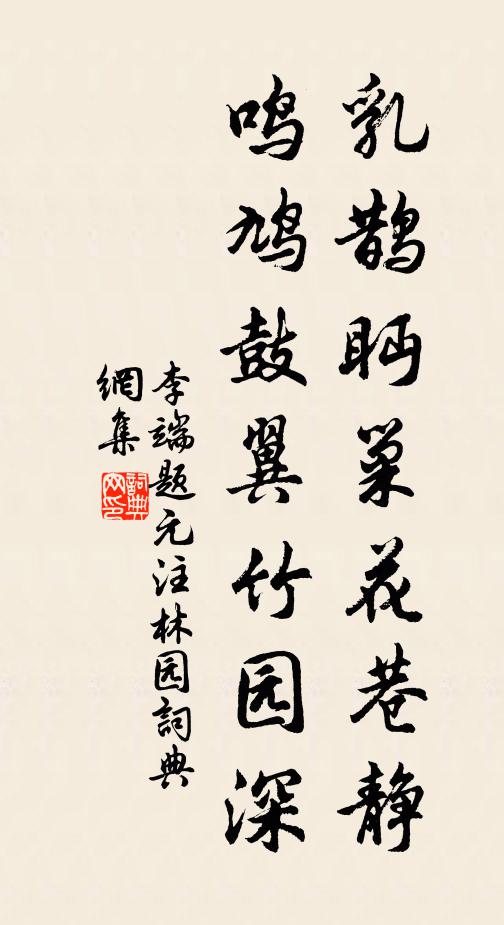 乳鹊眄巢花巷静
鸣鸠鼓翼竹园深
李端题元注林园詞典
網集
詞典
网印